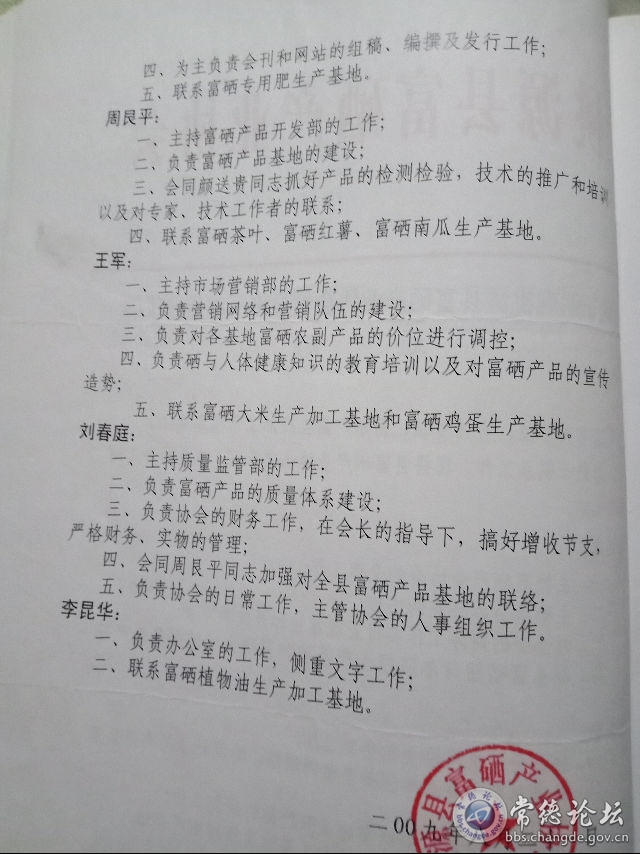 四、为主负责会刊和网站的组稿、编撰及发行工作；
五、联系富硒专用肥生产基地。
周艮平：
一、主持富硒产品开发部的工作；
二、负责富硒产品基地的建设；
三、会同颜送贵同志抓好产品的检测检验，技术的推广和培训
以及对专家、技术工作者的联系；
四、联系富硒茶叶、富硒红薯、富硒南瓜生产基地。
王军：
一、主持市场营销部的工作；
二、负责营销网络和营销队伍的建设；
三、负责对各基地富硒农副产品的价位进行调控；
四、负责硒与人体健康知识的教育培训以及对富硒产品的宣传
造势；
五、联系富硒大米生产加工基地和富硒鸡蛋生产基地。
刘春庭：
一、主持质量监管部的工作；
二、负责富硒产品的质量体系建设；
三、负责协会的财务工作，在会长的指导下，搞好增收节支，
严格财务、实物的管理；
四、会同周艮平同志加强对全县富硒产品基地的联络；
五、负责协会的日常工作，主管协会的人事组织工作。
李昆华：
一、负责办公室的工作，侧重文字工作；
二、联系富硒植物油生产加工基地。
源县富硒产业
二00九年
常德论坛
常德论坛
bbs.changde.gov.cn